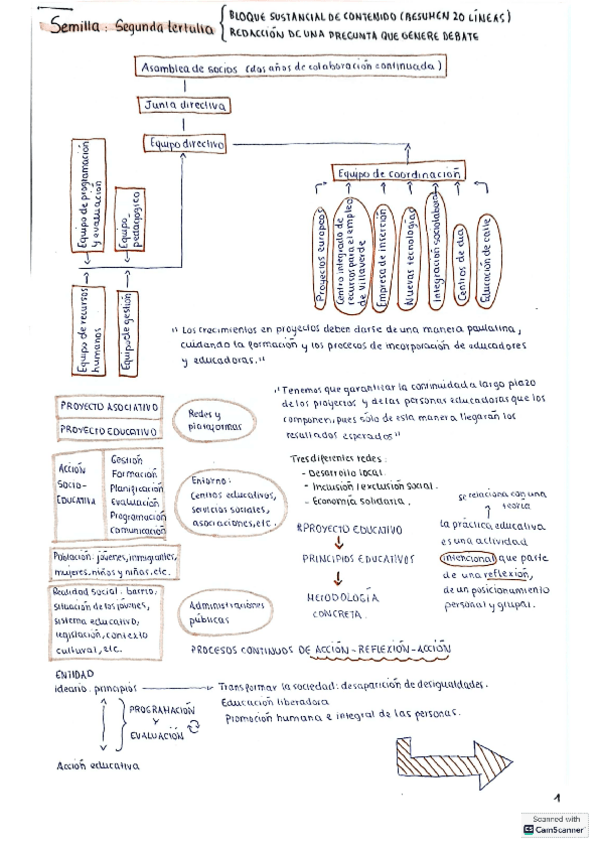 Semilla: Segunda tertulia
BLOQUE SUSTANCIAL DE CONTENIDO (RESUMEN 20 LÍNEAS)
REDACCIÓN DE UNA PREGUNTA QUE GENERE DEBATE
Asamblea de socios (dos años de colaboración continuada)
Junta directiva
Equipo directivo
Equipo de coordinación
Equipo de programación
y evaluación
Equipo
pedagógico
Equipo de recursos
humanos
Equipo de gestión
Proyectos europeos
Centro integrado de
recursos para el empleo
de villaverde
Empresa de inserción
Nuevas tecnologías
Integración sociolaboral
Centros de día
Educación de calle
"Los crecimientos en proyectos deben darse de una manera paulatina,
cuidando la formación y los procesos de incorporación de educadores
y educadoras."
PROYECTO ASOCIATIVO
PROYECTO EDUCATIVO
Redes y
plataformas
"Tenemos que garantizar la continuidad a largo plazo
de los proyectos y de las personas educadoras que los
componen, pues sólo de esta manera llegarán los
resultados esperados"
ACCIÓN
SOCIO-
EDUCATIVA
Gestión
Formación
Planificación
Evaluación
Programación
Comunicación
Entorno:
Centros educativos,
servicios sociales,
asociaciones, etc.
Tres diferentes redes:
- Desarrollo local.
- Inclusión/exclusión social.
- Economía solidaria.
PROYECTO EDUCATIVO
PRINCIPIOS EDUCATIVOS
METODOLOGÍA
CONCRETA.
se relaciona con una
teoría
la práctica educativa
es una actividad
intencional que parte
de una reflexión,
de un posicionamiento
personal y grupal.
Población: jóvenes, inmigrantes,
mujeres, niños y niñas, etc.
Realidad social: barrio,
situación de los jóvenes,
sistema educativo,
legislación, contexto
cultural, etc.
Administraciones
públicas
PROCESOS CONTINUOS DE ACCIÓN-REFLEXIÓN-ACCIÓN
ENTIDAD
ideario: principios
Transformar la sociedad: desaparición de desigualdades.
Educación liberadora
Promoción humana e integral de las personas.
PROGRAMACIÓN
Y
EVALUACIÓN
Acción educativa
1
Scanned with
CS CamScanner